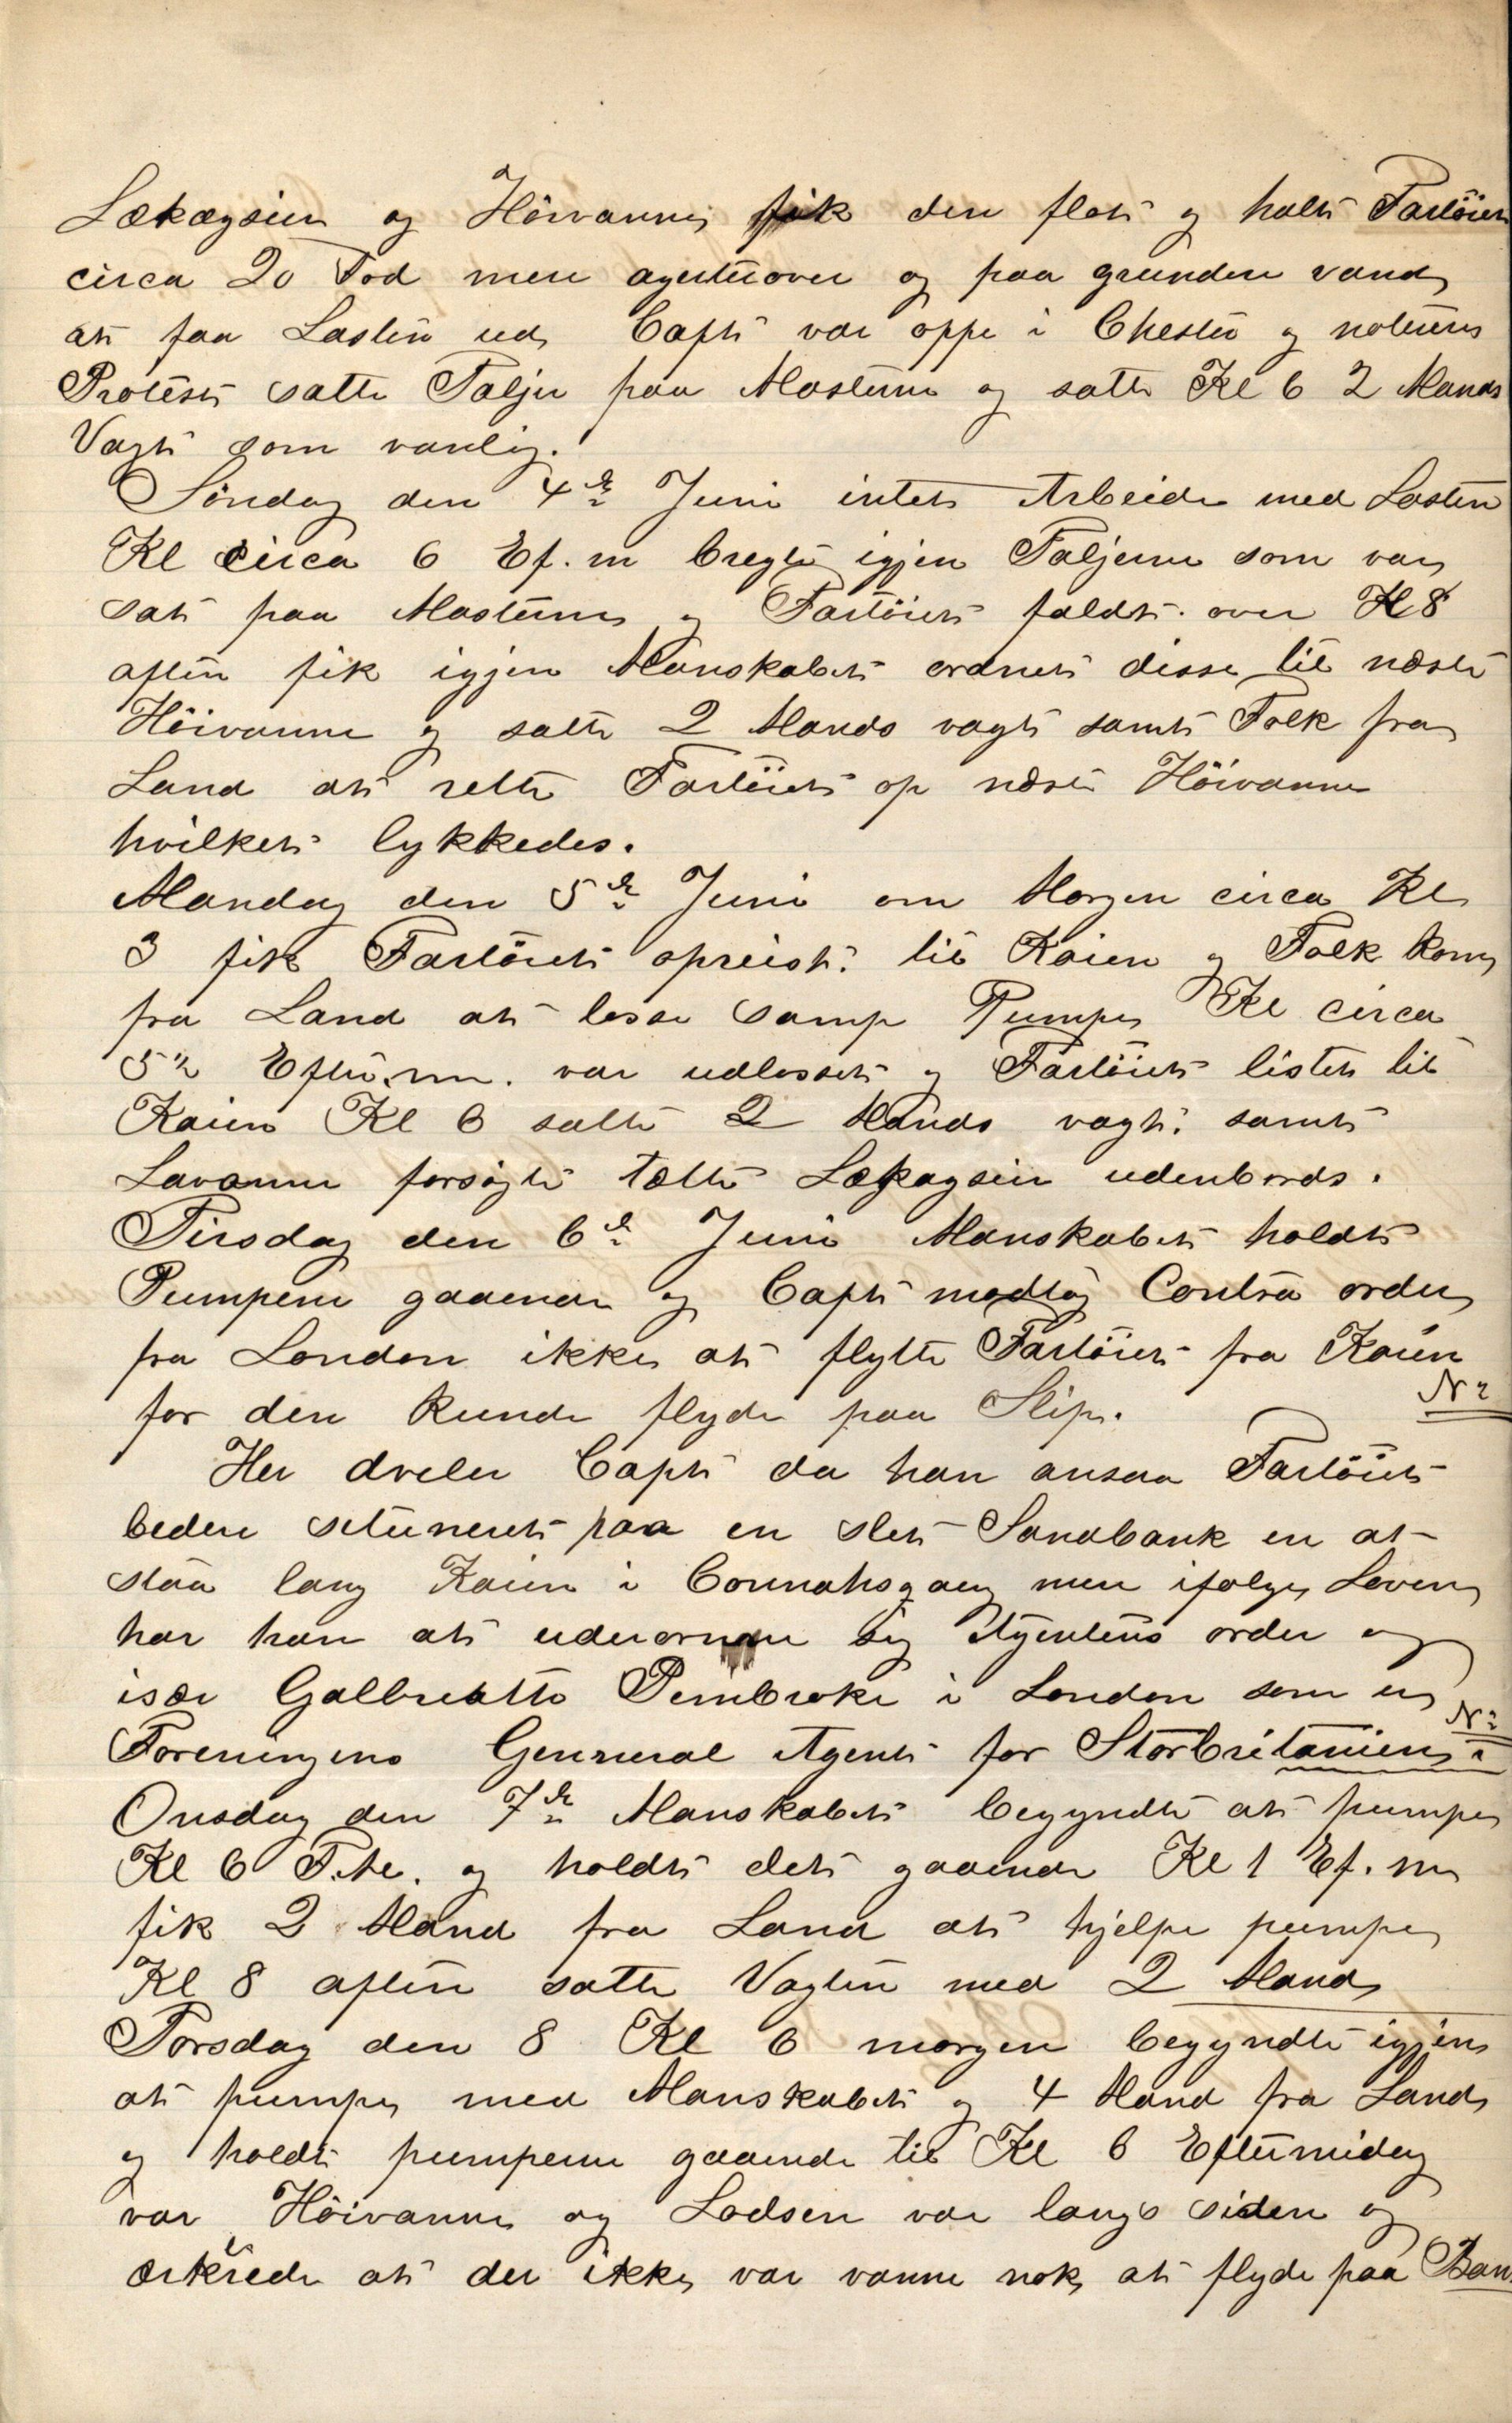 Lækagsien og Höivanne fik den flot og halt Fartöiet
circa 20 Fod mere agterover og paa grundere vand
at faa Lasten ud Capt var oppe i Chester og noterer
Protest satte Taljer paa Masterne og satte Kl 6 2 Mands
Vagt som vanlig.
Söndag den 4de Juni intet Arbeide med Lasten
Kl circa 6 Ef. m bregte igjen Taljerne som var
sat paa Masterne og Fartöiet faldt over Kl 8
aften fik igjen Manskabet ordnet disse til næste
Höivanne og satte 2 Mands vagt samt Folk fra
Land at rette Fartöiet op næste Höivanne
hvilket lykkedes.
Mandag den 5de Juni om Morgen circa Kl
3 fik Fartöiet opreist til Kaien og Folk kom
fra Land at losse samp Pumpe Kl circa
5 Efterm. var udlosset og Fartöiet listet til
Kaien Kl 6 satte 2 Mands vagt samt
Lavanne forsögte tætte Lækagsien udenbords.
Tirsdag den 6de Juni Manskabet holdt
Pumpene gaaende og Capt modtog Contra order
fra London ikke at flytte Fartöiet fra Kaien
for den kunde flyde paa Slip.
N2
Her dveler Capt da han ansaa Fartöiet
bedere situeret paa en slet Sandbank en at
staa lang Kaien i Connahsqaey men ifölge Loven
har han at underornne sig Agentens order og
især Galbreatts Pembroke i London som er
N2
Foreningens General Agent for Storbritanien
Onsdag den 7de Manskabet begyndte at pumpe
Kl 6 F.M. og holdt det gaaende Kl 1 Ef. m
fik 2 Mand fra Land at hjelpe pumpe
Kl 8 aften satte Vagten med 2 Mand
Torsdag den 8 Kl 6 morgen begyndte igjen
at pumpe med Manskabet og 4 Mand fra Land
og holdt pumpene gaaende til Kl 6 Eftermidag
var Höivanne og Lodsen var langs siden og
ærklrede at der ikke var vanne nok at flyde paa Ban